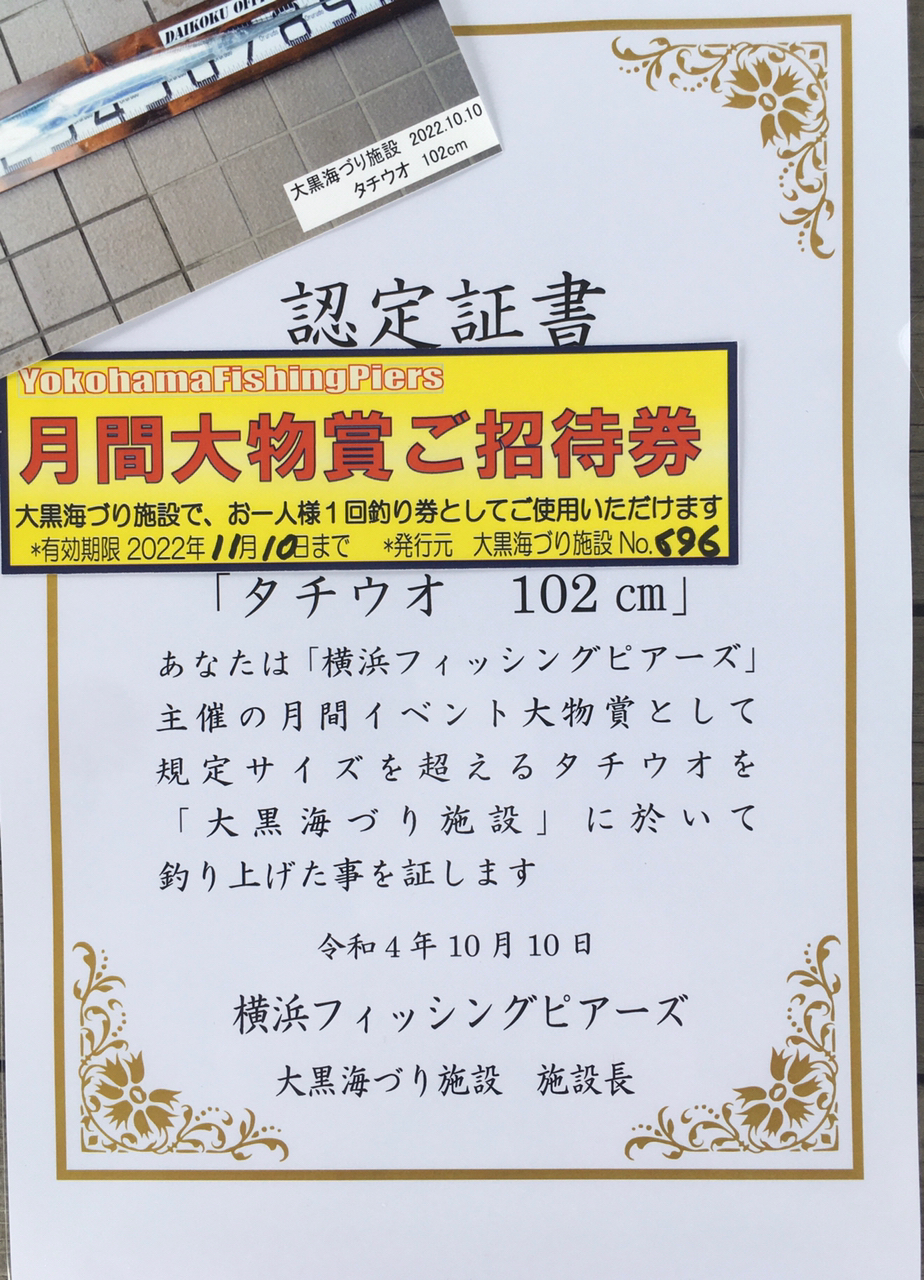 DAIKOKU
大黒海づり施設 2022.10.10
タチウオ 102cm
認定証書
YokohamaFishingPiers
月間大物賞ご招待券
大黒海づり施設で、お一人様1回釣り券としてご使用いただけます
*有効期限 2022年11月10日まで *発行元 大黒海づり施設 No.696
「タチウオ 102㎝」
あなたは「横浜フィッシングピアーズ」
主催の月間イベント大物賞として
規定サイズを超えるタチウオを
「大黒海づり施設」に於いて
釣り上げた事を証します
令和4年10月10日
横浜フィッシングピアーズ
大黒海づり施設 施設長